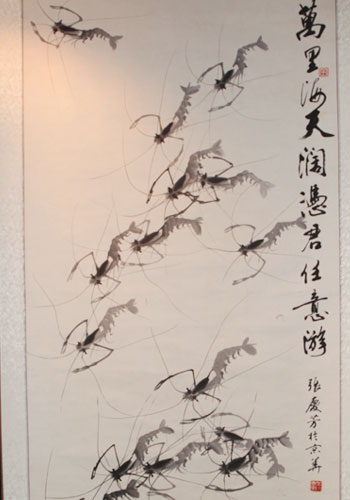 萬里海天濶憑君任意游
張慶芳於京華